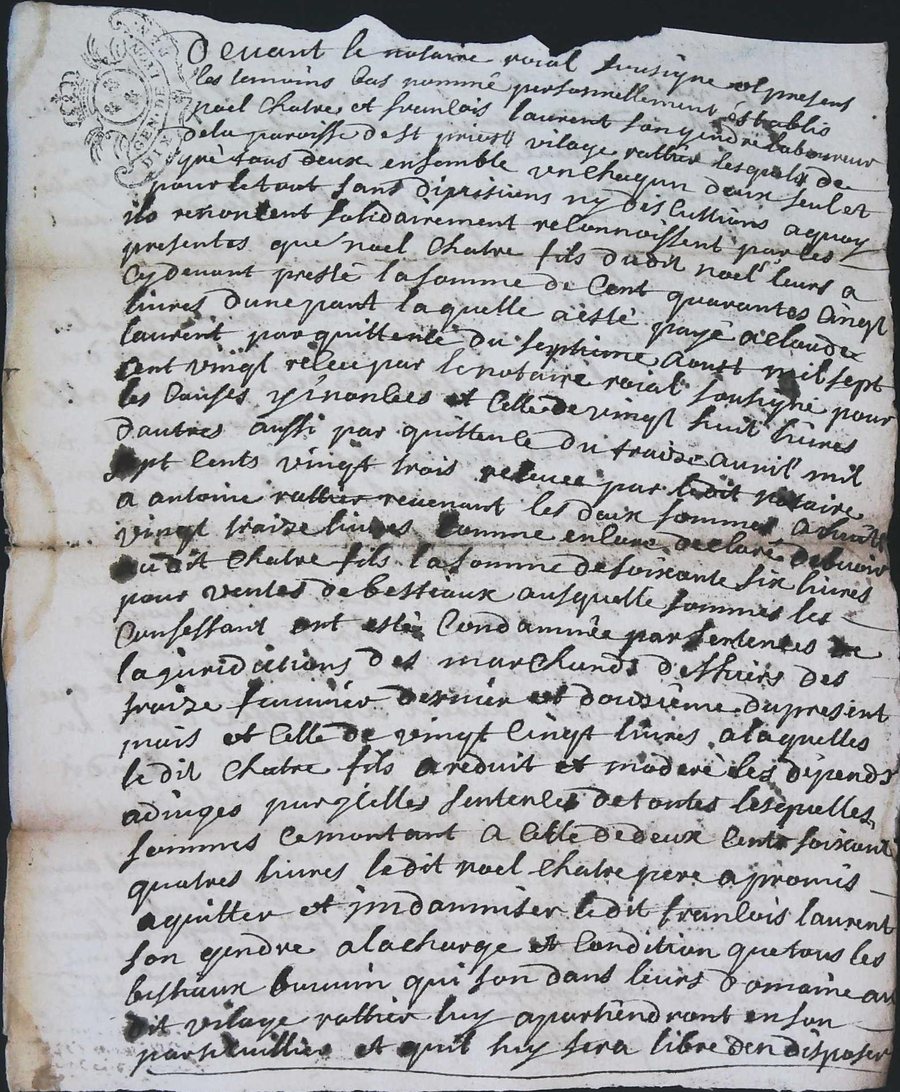 GEN. DE
DIX
Devant le notaire roial sousigne et presens
les temoins bas nommé personnellement establis
noel Chatre et francois laurent son gendre laboureur
dela paroisse de st priest vilage rattier lesquels de
gré tous deux ensemble un chaqun deux seul et
pour le tout sans divisions ny discutions a quoy
ils renoncent solidairement reconnoissent par les
presentes que noel Chatre fils dudit noel leurs a
cy devant presté la somme de cent quarantes cinqt
livres dune part laquelle a esté payé a claude
laurent par quittence du septieme aoust mil sept
cent vingt receu par le notaire roial sousigné pour
les causes y enoncees et celle de vingt huit livres
dautres aussi par quittence du traize avril mil
sept cents vingt trois receuee par le dit notaire
a antoine rattier revenant les deux sommes a
vingt traize livres comme encore declare debvoir
audit Chatre fils la somme de soixante six livres
pour ventes de bestiaux ausquelle sommes les
Confessant ont esté Condamnée par sentences de
la juridictions des marchands de thiers des
traize fevrier dernier et douzieme du present
mois et celle de vingt cinqt livres a laquelles
le dit Chatre fils a reduit et moderé les dépends
adjuges par icelles sentences de toutes lesquelles
sommes ce montant a celle de deux cents soixante
quatres livres le dit noel Chatre pere a promis
aquitter et jndamniser le dit francois laurent
son gendre a la charge et Condition que tous les
bestiaux qui son dans leurs Domaine au
dit vilage rattier luy apartiendront en son
particullier et quil luy sera libre den disposer